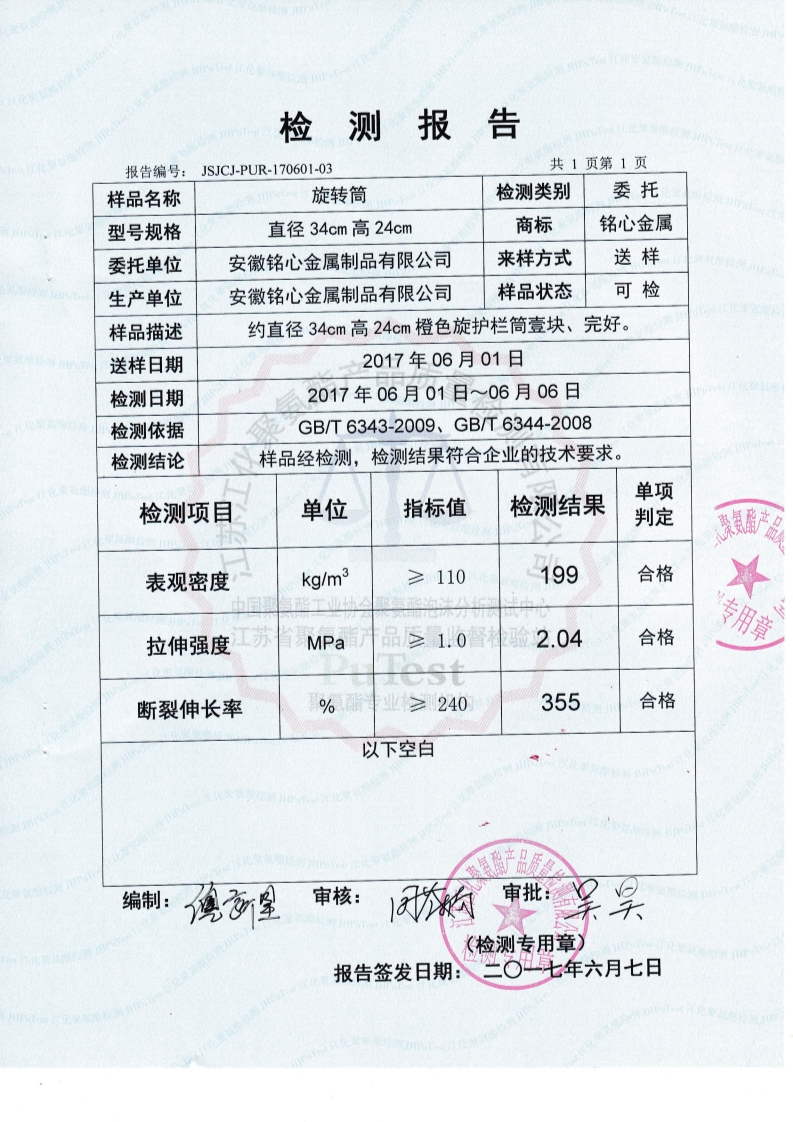 检测报告
报告编号： JSJCJ-PUR-170601-03 共 1 页第 1 页
样品名称 旋转筒 检测类别 委 托
型号规格 直径 34cm 高 24cm 商标 铭心金属
委托单位 安徽铭心金属制品有限公司 来样方式 送 样
生产单位 安徽铭心金属制品有限公司 样品状态 可 检
样品描述 约直径 34cm 高 24cm 橙色旋护栏筒壹块、完好。
送样日期 2017 年 06 月 01 日
检测日期 2017 年 06 月 01 日～06 月 06 日
检测依据 GB/T 6343-2009、GB/T 6344-2008
检测结论 样品经检测，检测结果符合企业的技术要求。
检测项目 单位 指标值 检测结果 单项判定
表观密度 kg/m³ ≥ 110 199 合格
拉伸强度 MPa ≥ 1.0 2.04 合格
断裂伸长率 % ≥ 240 355 合格
以下空白
江苏江化聚氨酯产品质量检测有限公司
中国聚氨酯工业协会聚氨酯泡沫分析测试中心
江苏省聚氨酯产品质量监督检验站
PuTest
聚氨酯专业检测机构
编制： 审核： 审批：
（检测专用章）
报告签发日期： 二〇一七年六月七日